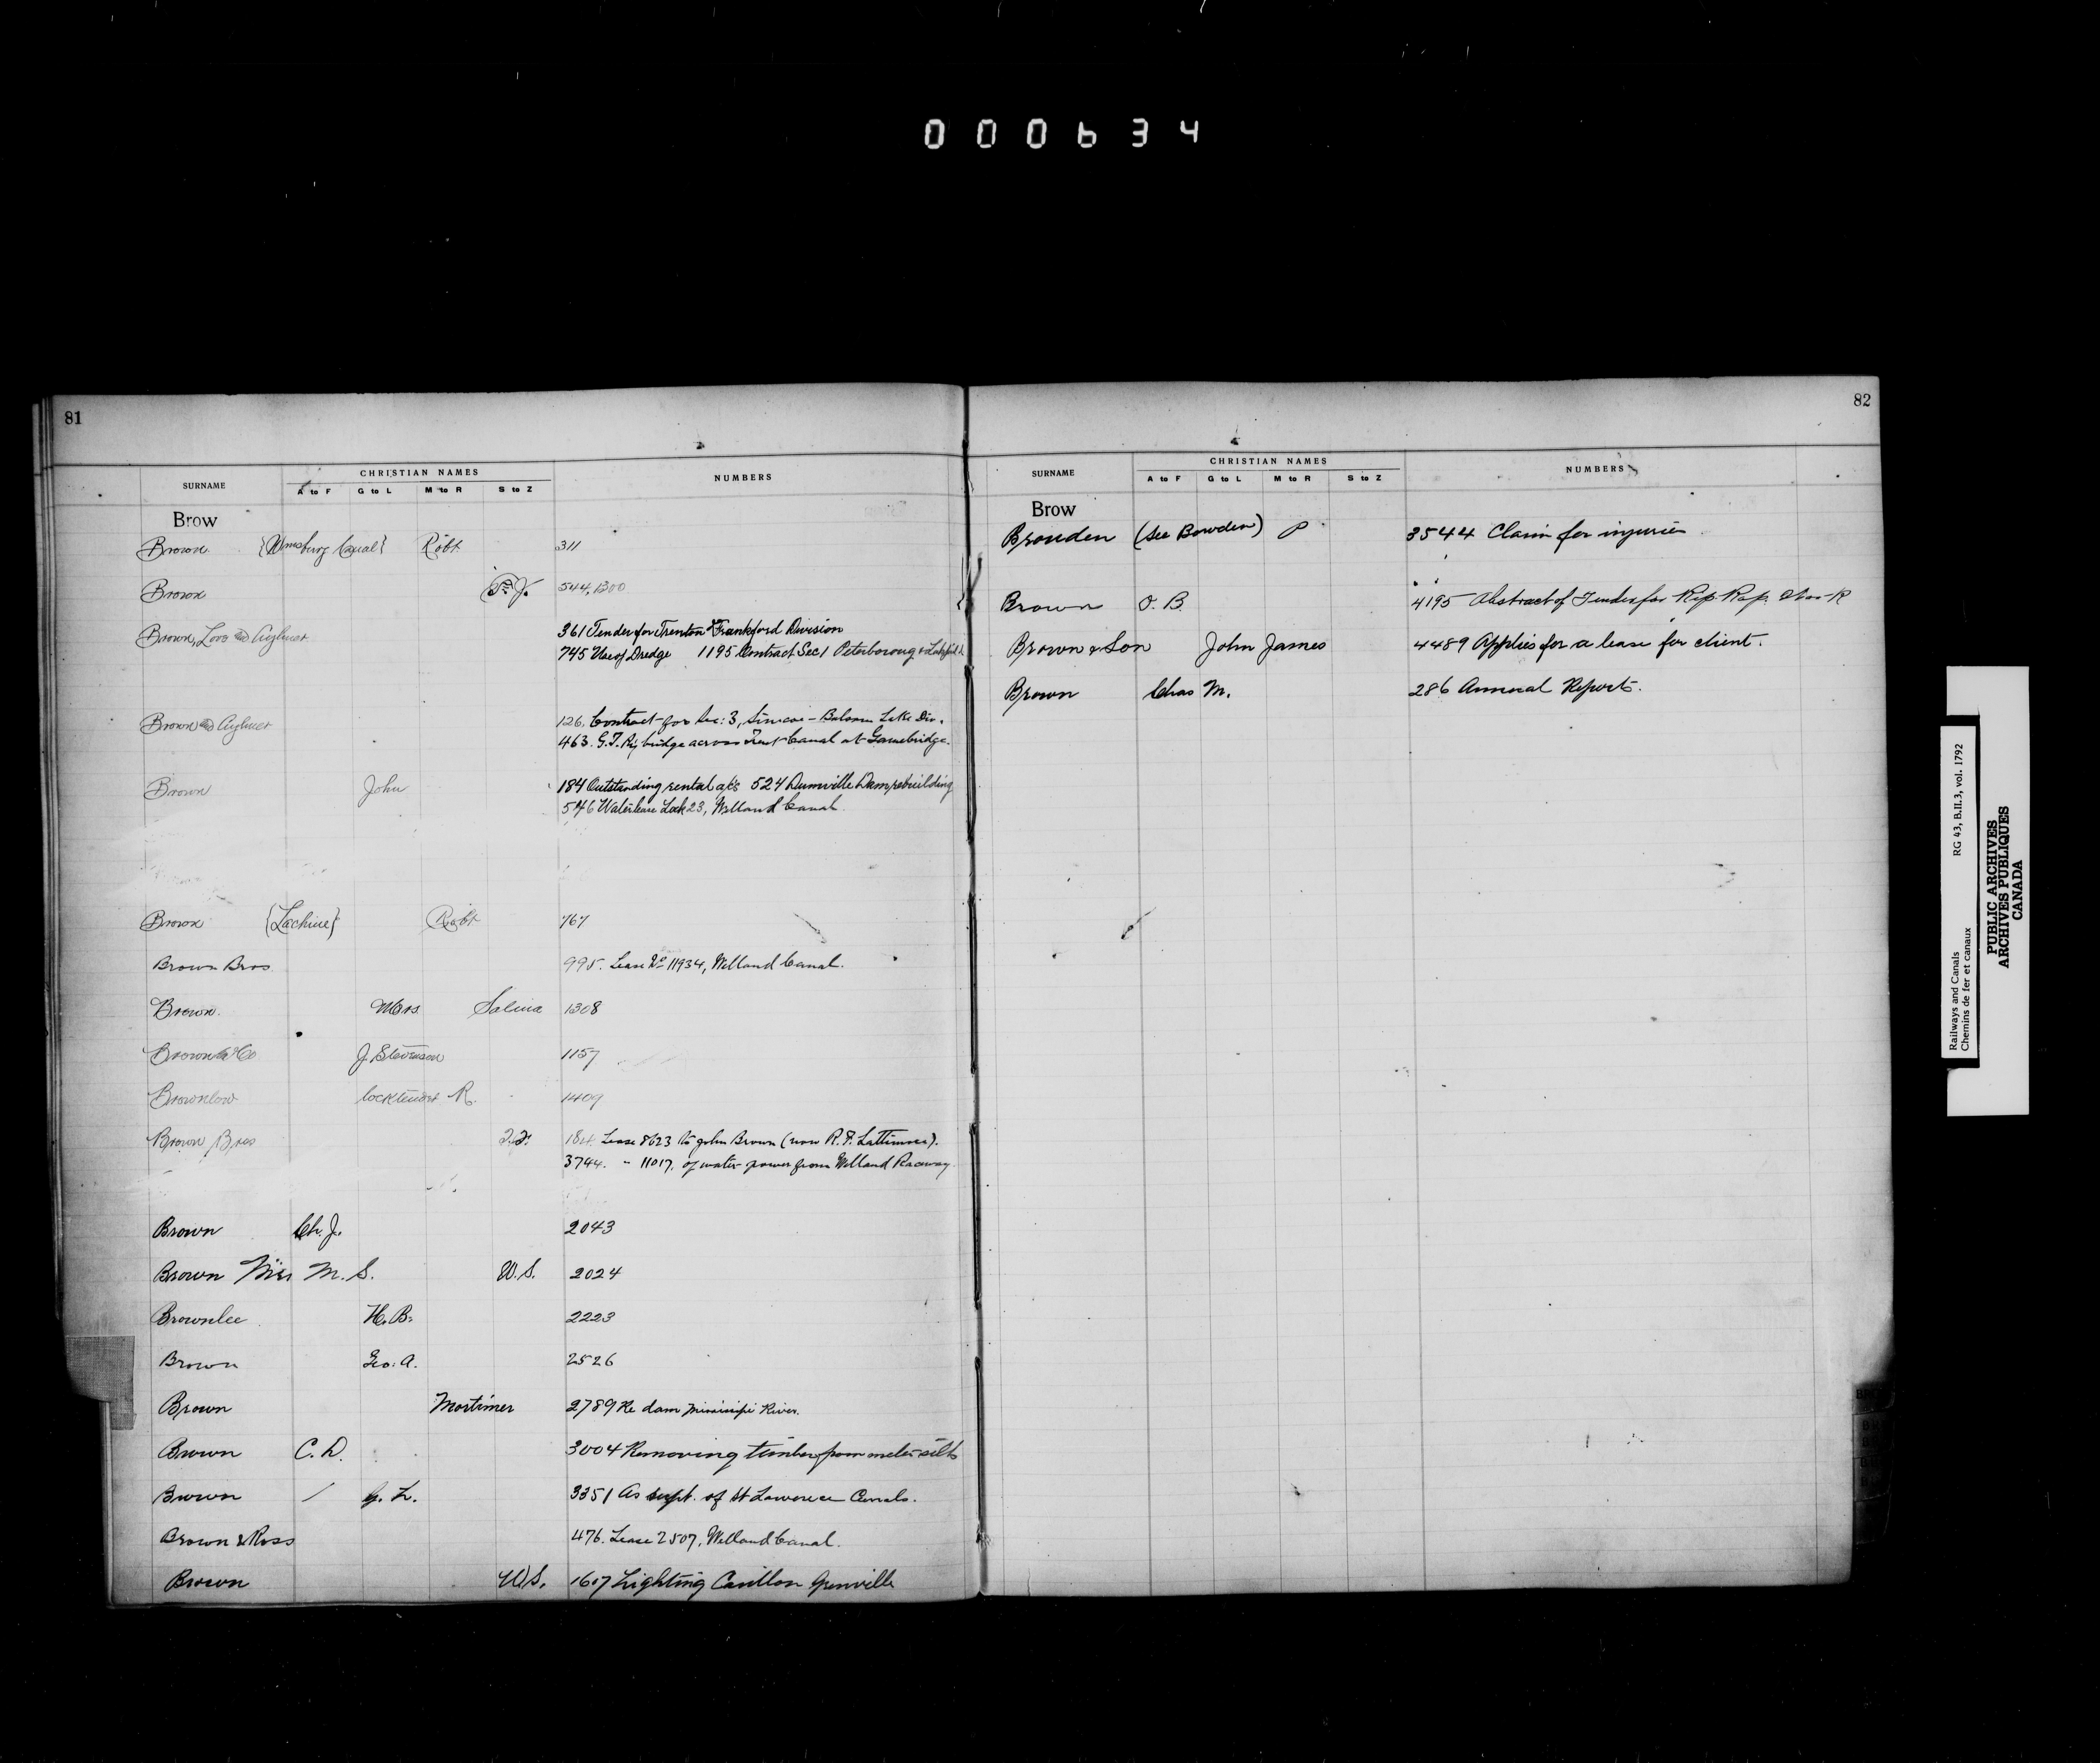 000634
81
SURNAME CHRISTIAN NAMES NUMBERS
A to F G to L M to R S to Z
Brow
Brown {Wmsburg Canal} Robt 311
Brown J. 544, 1300
Brown, Love and Aylmer 361 Tender for Trenton & Frankford Division
745 Use of Dredge 1195 Contract Sec 1 Peterboroug & Lakefield
Brown and Aylmer 126. Contract for Sec: 3, Simcoe - Balsam Lake Div.
463. G.T. Ry bridge across Trent Canal at Gamebridge.
Brown John 184 Outstanding rental a/cs 524 Dunnville Dam rebuilding
546 Water lease Lock 23, Welland Canal
Brown {Lachine} Robt 767
Brown Bros 995. Lease No 11934, Welland Canal.
Brown Mrs Salina 1308
Brown & Co J. Stevenson 1157
Brownlow R. 1409
Brown Bros 184 Lease 8623 to John Brown (now R.F. Lattimore).
3744. " 11017, of water power from Welland Raceway
Brown Ch. J. 2043
Brown Miss M. S. W. S. 2024
Brownlee H. B. 2223
Brown Geo. A. 2526
Brown Mortimer 2789 Re dam Mississipi River.
Brown C. D. 3004 Removing timber from
Brown / G. L. 3351 As supt. of St Lawrence Canals.
Brown & Ross 476. Lease 2507, Welland Canal.
Brown W S. 1607 Lighting Carillon Grenville
82
SURNAME CHRISTIAN NAMES NUMBERS
A to F G to L M to R S to Z
Brow
Browden (see Bowden) P 3544 Claim for injuries
Brown O. B. 4195 Abstract of Tender for Rip Rap
Brown & Son John James 4489 Applies for a lease for client.
Brown Chas M. 286 Annual Reports.
Railways and Canals RG 43, B.II.3, vol. 1792
Chemins de fer et canaux
PUBLIC ARCHIVES
ARCHIVES PUBLIQUES
CANADA